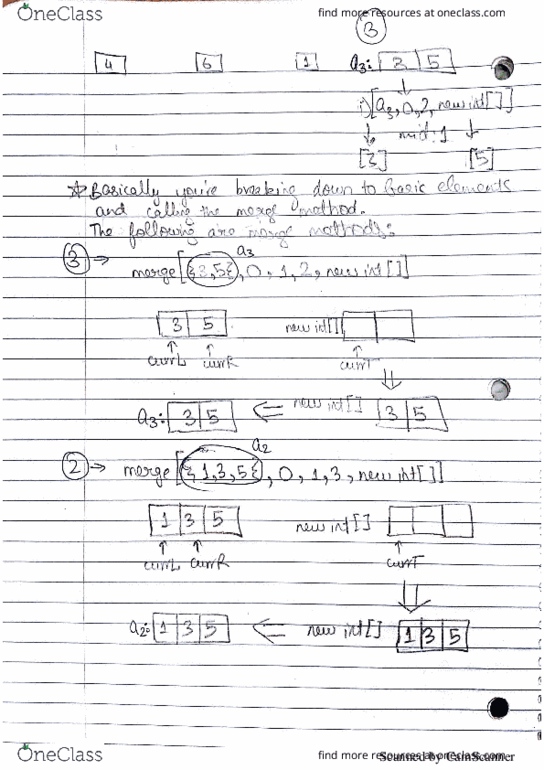 OneClass
find more resources at oneclass.com
3
4 6 1 a3: 3 5
[a3, 0, 2, new int[]]
mid: 1
[3] [5]
* Basically you're breaking down to basic elements
and calling the merge method.
The following are merge methods:
3 → a3
merge[{3,5}, 0, 1, 2, new int[]]
3 5 new int[]
currL currR currT
a3: 3 5 ⇐ new int[] 3 5
2 → a2
merge[{1,3,5}, 0, 1, 3, new int[]]
1 3 5 new int[]
currL currR currT
a2: 1 3 5 ⇐ new int[] 1 3 5
OneClass
find more resources at oneclass.com
Scanned by CamScanner